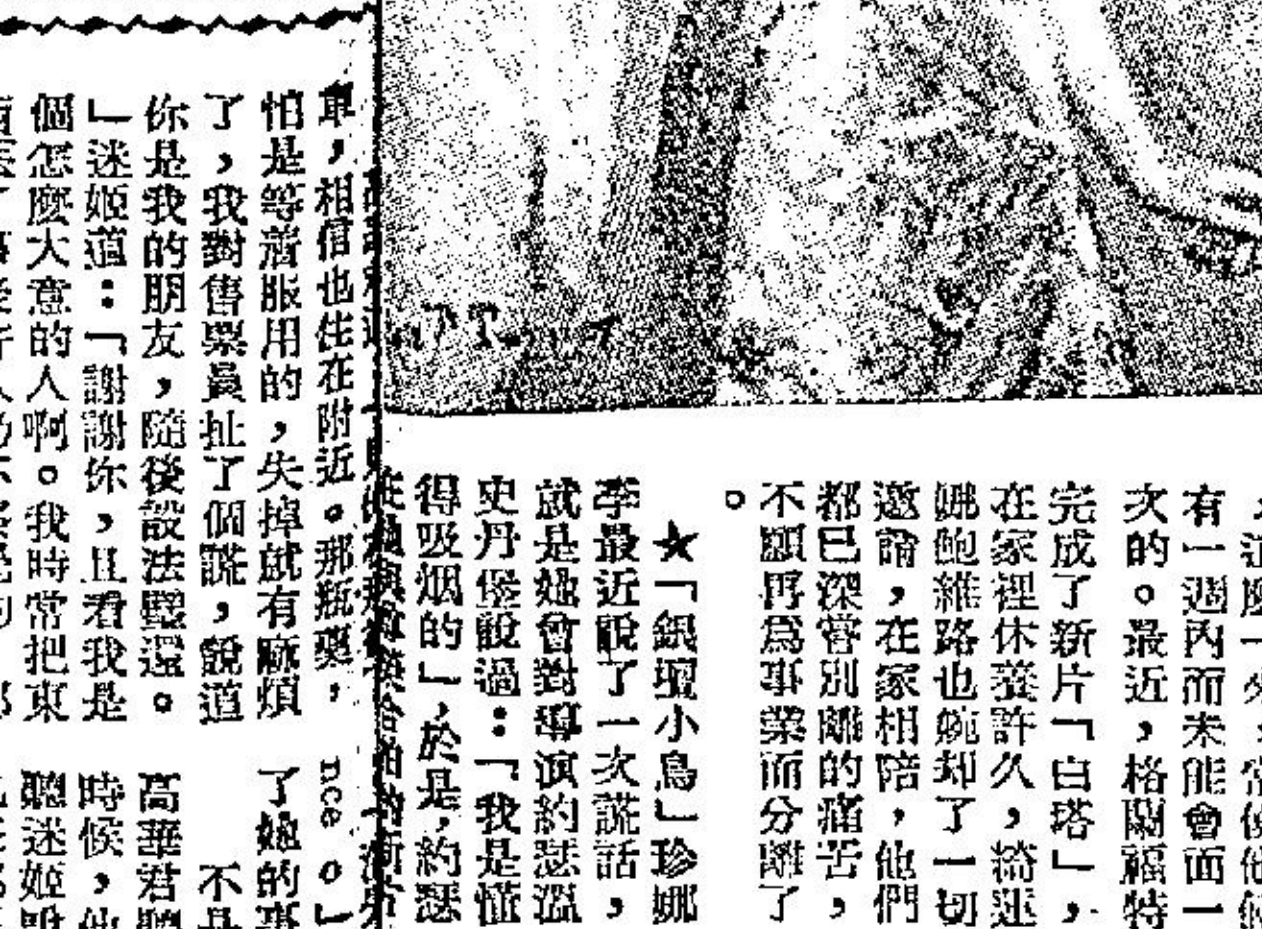 有一週內而未能會面一
次的。最近，格蘭福特
完成了新片「白塔」，
在家裡休養許久，綺迷
娜鮑維路也婉却了一切
邀請，在家相陪，他們
都已深嘗別離的痛苦，
不願再為事業而分離了
。
★「銀壇小鳥」珍娜
李最近說了一次謊話，
就是她會對導演約瑟溫
史丹堡說過：「我是懂
得吸烟的」，於是，約瑟
車，相信也住在附近。那瓶藥，
怕是等着服用的，失掉就有麻煩
了，我對售票員扯了個謊，說道
你是我的朋友，隨後設法璧還。
」迷姬道：「謝謝你，且看我是
個怎麼大意的人啊。我時常把東
nce。」
了她的事
不是
高華君聽
時候，他
聽迷姬